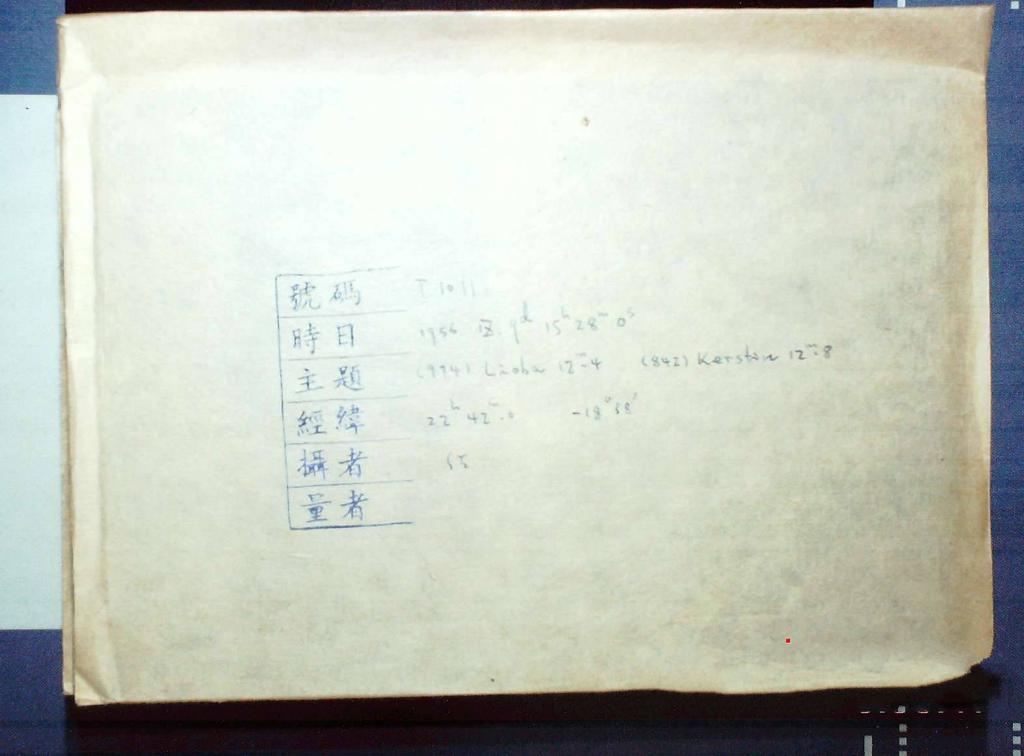 號碼 T 1011
時日 1956 IX. 9ᵈ 15ʰ 28ᵐ 0ˢ
主題 (994) Lioba 12ᵐ.4 (842) Kerstin 12ᵐ.8
經緯 22ʰ 42ᵐ.0 -18°58′
攝者
量者